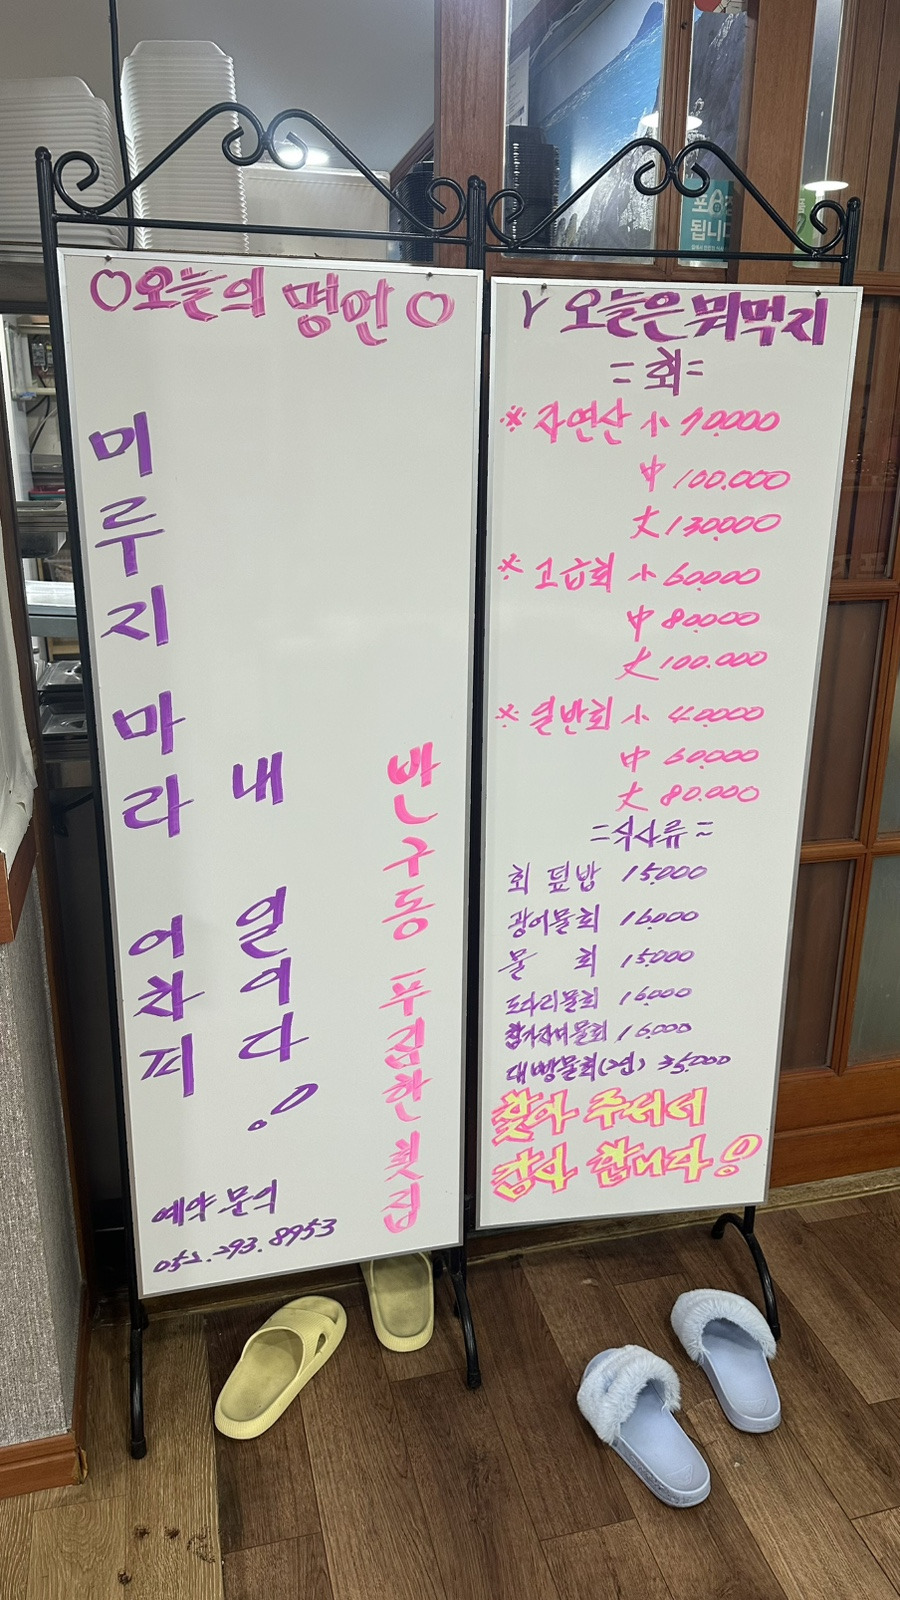 ♡오늘의 명언♡
미루지 마라 어차피
내 일이다!
반구동 푸짐한 횟집
예약 문의
052.293.8953
Y 오늘은 뭐먹지
=회=
※자연산 小 70.000
中 100.000
大 130.000
※고급회 小 60.000
中 80.000
大 100.000
※일반회 小 40.000
中 60.000
大 80.000
=식사류=
회 덮밥 15.000
광어물회 16.000
물 회 15.000
도다리물회 16.000
참가자미물회 16.000
대빵물회(2인) 35.000
찾아 주셔서
감사 합니다